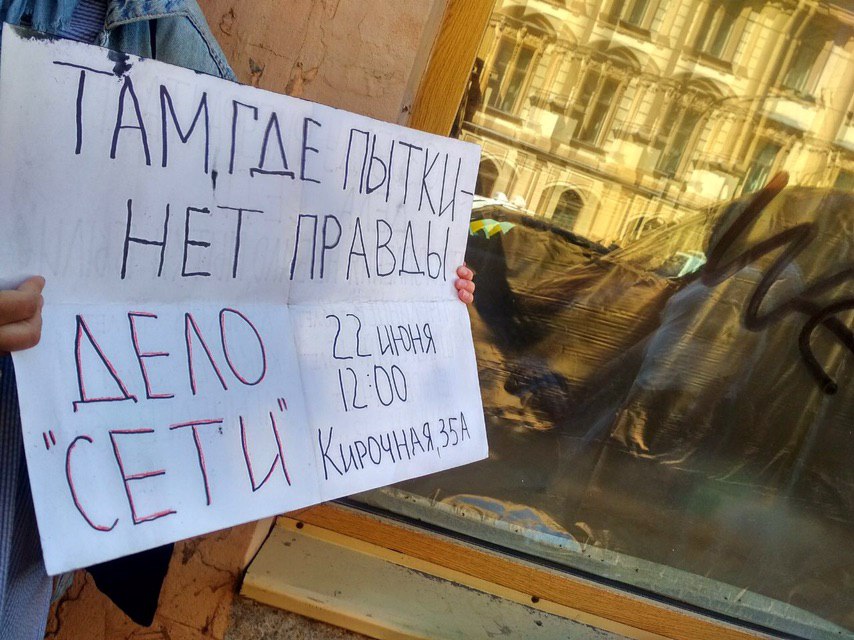 ТАМ, ГДЕ ПЫТКИ-
НЕТ ПРАВДЫ
ДЕЛО
"СЕТИ"
22 июня
12:00
Кирочная, 35А